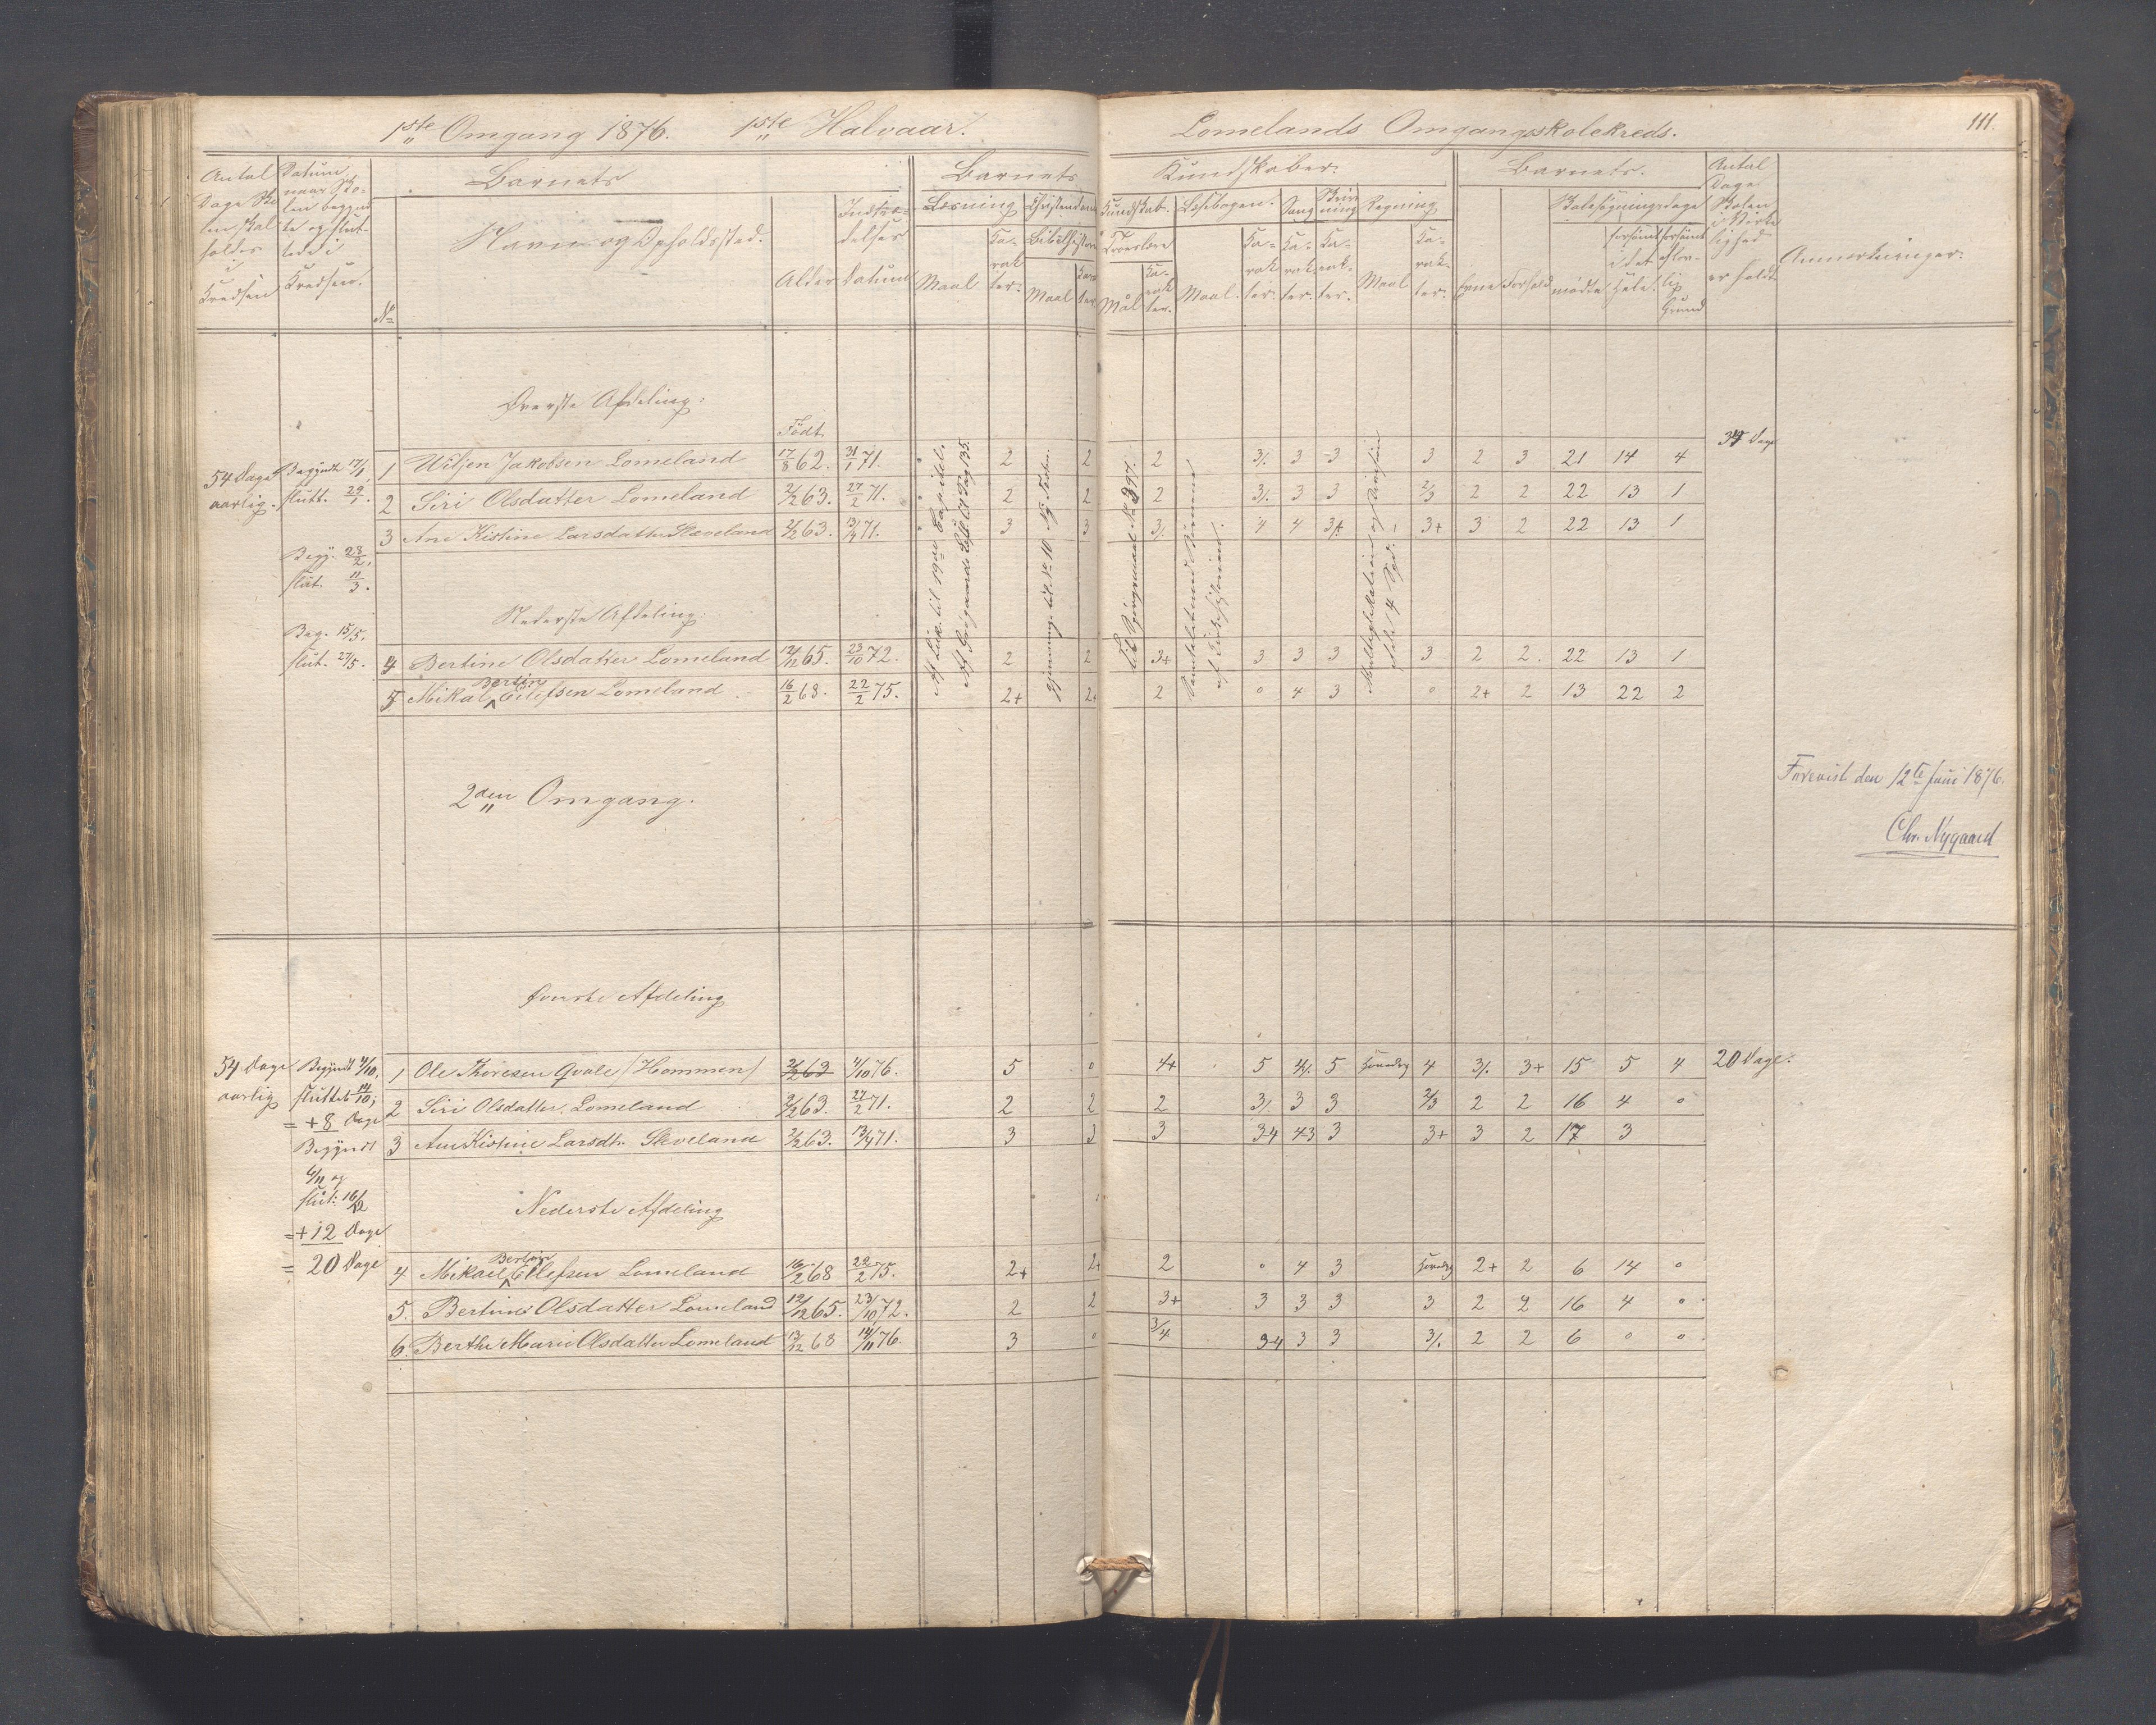 1ste Omgang 1876. 1ste Halvaar. Lomelands Omgangsskolekreds. 111.
Antal Dage Skolen skal holdes i Kredsen
Datum naar Skolen begyndte og sluttede i Kredsen.
Barnets
No
Navn og Opholdssted.
Alder
Indtrædelses Datum
Barnets Kundskaber.
Læsning
Maal
Karakter.
Christendomskundskab.
Bibelhistorie
Maal
Karakter
Troeslære
Mål
Karakter.
Læsebogen.
Maal.
Karakter.
Sang
Karakter.
Skrivning
Karakter.
Regning
Maal
Karakter.
Barnets.
Evne
Forhold
Skolesøgningsdage
mødte
forsømt i det Hele.
forsømt af lovlig Grund
Antal Dage Skolen i Virkelighed er holdt
Anmærkninger.
Øverste Afdeling.
Født
54 Dage aarlig.
Begyndt 17/1,
slutt. 29/1.
Begy. 28/2,
slut. 11/3.
Beg. 15/5.
slut. 27/5.
1 Wiljen Jakobsen Lomeland 17/8 62. 31/1 71. 2 2 2 3/. 3 3 3 2 3 21 14 4 34 Dage
2 Siri Olsdatter Lomeland 2/2 63. 27/2 71. 2 2 2 3/. 3 3 2/3 2 2 22 13 1
3 Ane Kistine Larsdatter Sleveland 2/2 63. 13/4 71. 3 3 3/. 4 4 3/. 3+ 3 2 22 13 1
Nederste Afdeling.
4 Bertine Olsdatter Lomeland 12/12 65. 23/10 72. 2 2 3+ 3 3 3 3 2 2. 22 13 1
5 Mikal Bertin Eilefsen Lomeland 16/2 68. 22/2 75. 2+ 2+ 2 0 4 3 0 2+ 2 13 22 2
Multiplikation og Division
2den Omgang.
Forevist den 12te Juni 1876.
Chr. Nygaard
Øverste Afdeling
54 Dage aarlig
Begyndt 4/10,
sluttet 14/10;
= + 8 Dage
Begyndt
4/11 og
slut: 16/12
= + 12 Dage
= 20 Dage
1 Ole Thoresen Qvale (Hommen) 2/2 63 4/10 76. 5 0 4+ 5 4/. 5 4 3/. 3+ 15 5 4 20 Dage.
2 Siri Olsdatter Lomeland 2/2 63. 27/2 71. 2 2 2 3/. 3 3 2/3 2 2 16 4 0
3 Ane Kistine Larsdtr. Sleveland 2/2 63. 13/4 71. 3 3 3 3-4 4-3 3 3+ 3 2 17 3
Nederste Afdeling
4 Mikael Bertin Eilefsen Lomeland 16/2 68 22/2 75. 2+ 2+ 2 0 4 3 2+ 2 6 14 0
5. Bertine Olsdatter Lomeland 12/12 65. 23/10 72. 2 2 3+ 3 3 3 3 2 2 16 4 0
6. Berthe Marie Olsdatter Lomeland 13/12 68 14/11 76. 3 0 3/4 3-4 3 3 3/. 2 2 6 0 0